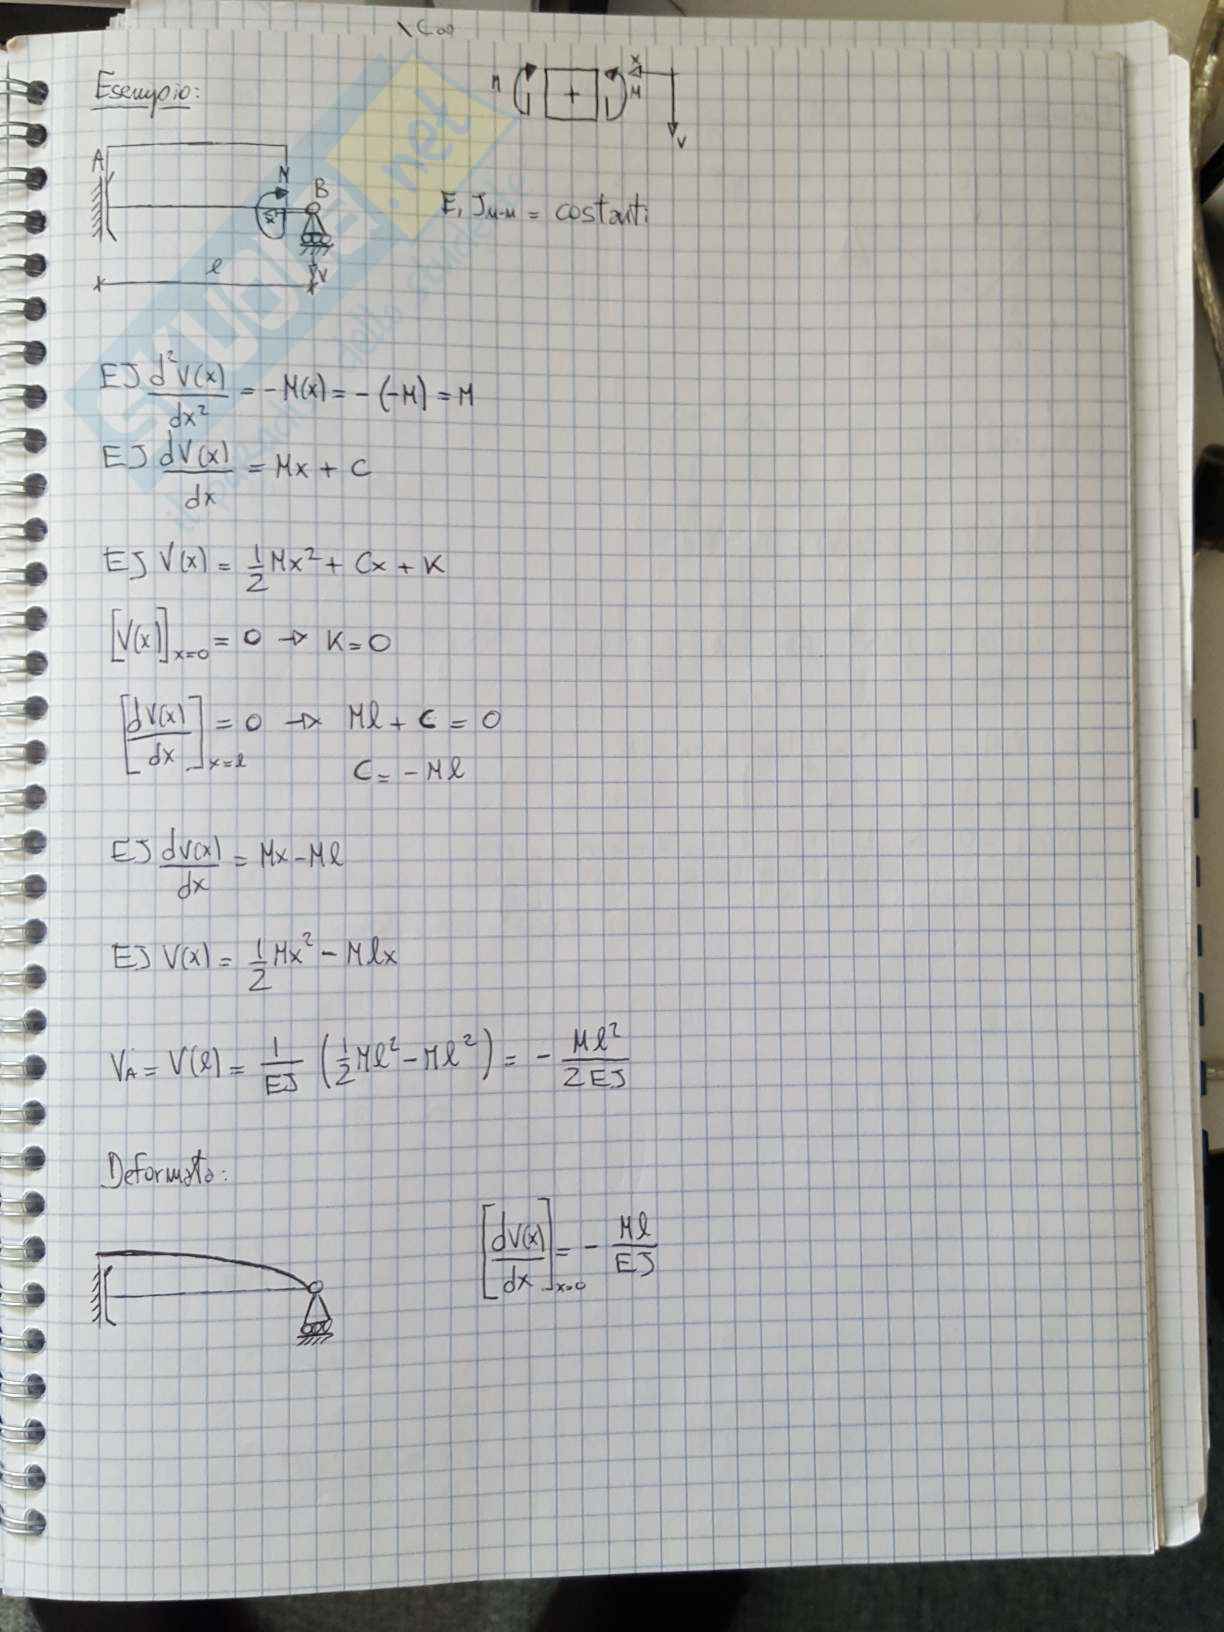 Esempio:
M + M x v
A
M
B
E, J_{M-M} = costanti
l
v
EJ d²V(x)/dx² = -M(x) = -(-M) = M
EJ dV(x)/dx = Mx + C
EJ V(x) = 1/2 Mx² + Cx + K
[V(x)]_{x=0} = 0 → K = 0
[dV(x)/dx]_{x=l} = 0 → Ml + C = 0
C = -Ml
EJ dV(x)/dx = Mx - Ml
EJ V(x) = 1/2 Mx² - Mlx
V_A = V(l) = 1/EJ (1/2 Ml² - Ml²) = - Ml²/2EJ
Deformata:
[dV(x)/dx]_{x=0} = - Ml/EJ
SKUOLA.net